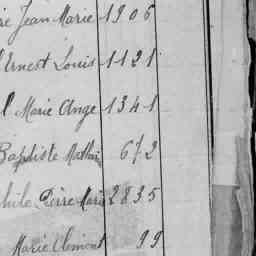 re Jean Marie 1906
Ernest Louis 1121
l Marie Ange 1341
Baptiste Mathin 672
philo Pierre Marie 2835
Marie Clement 99